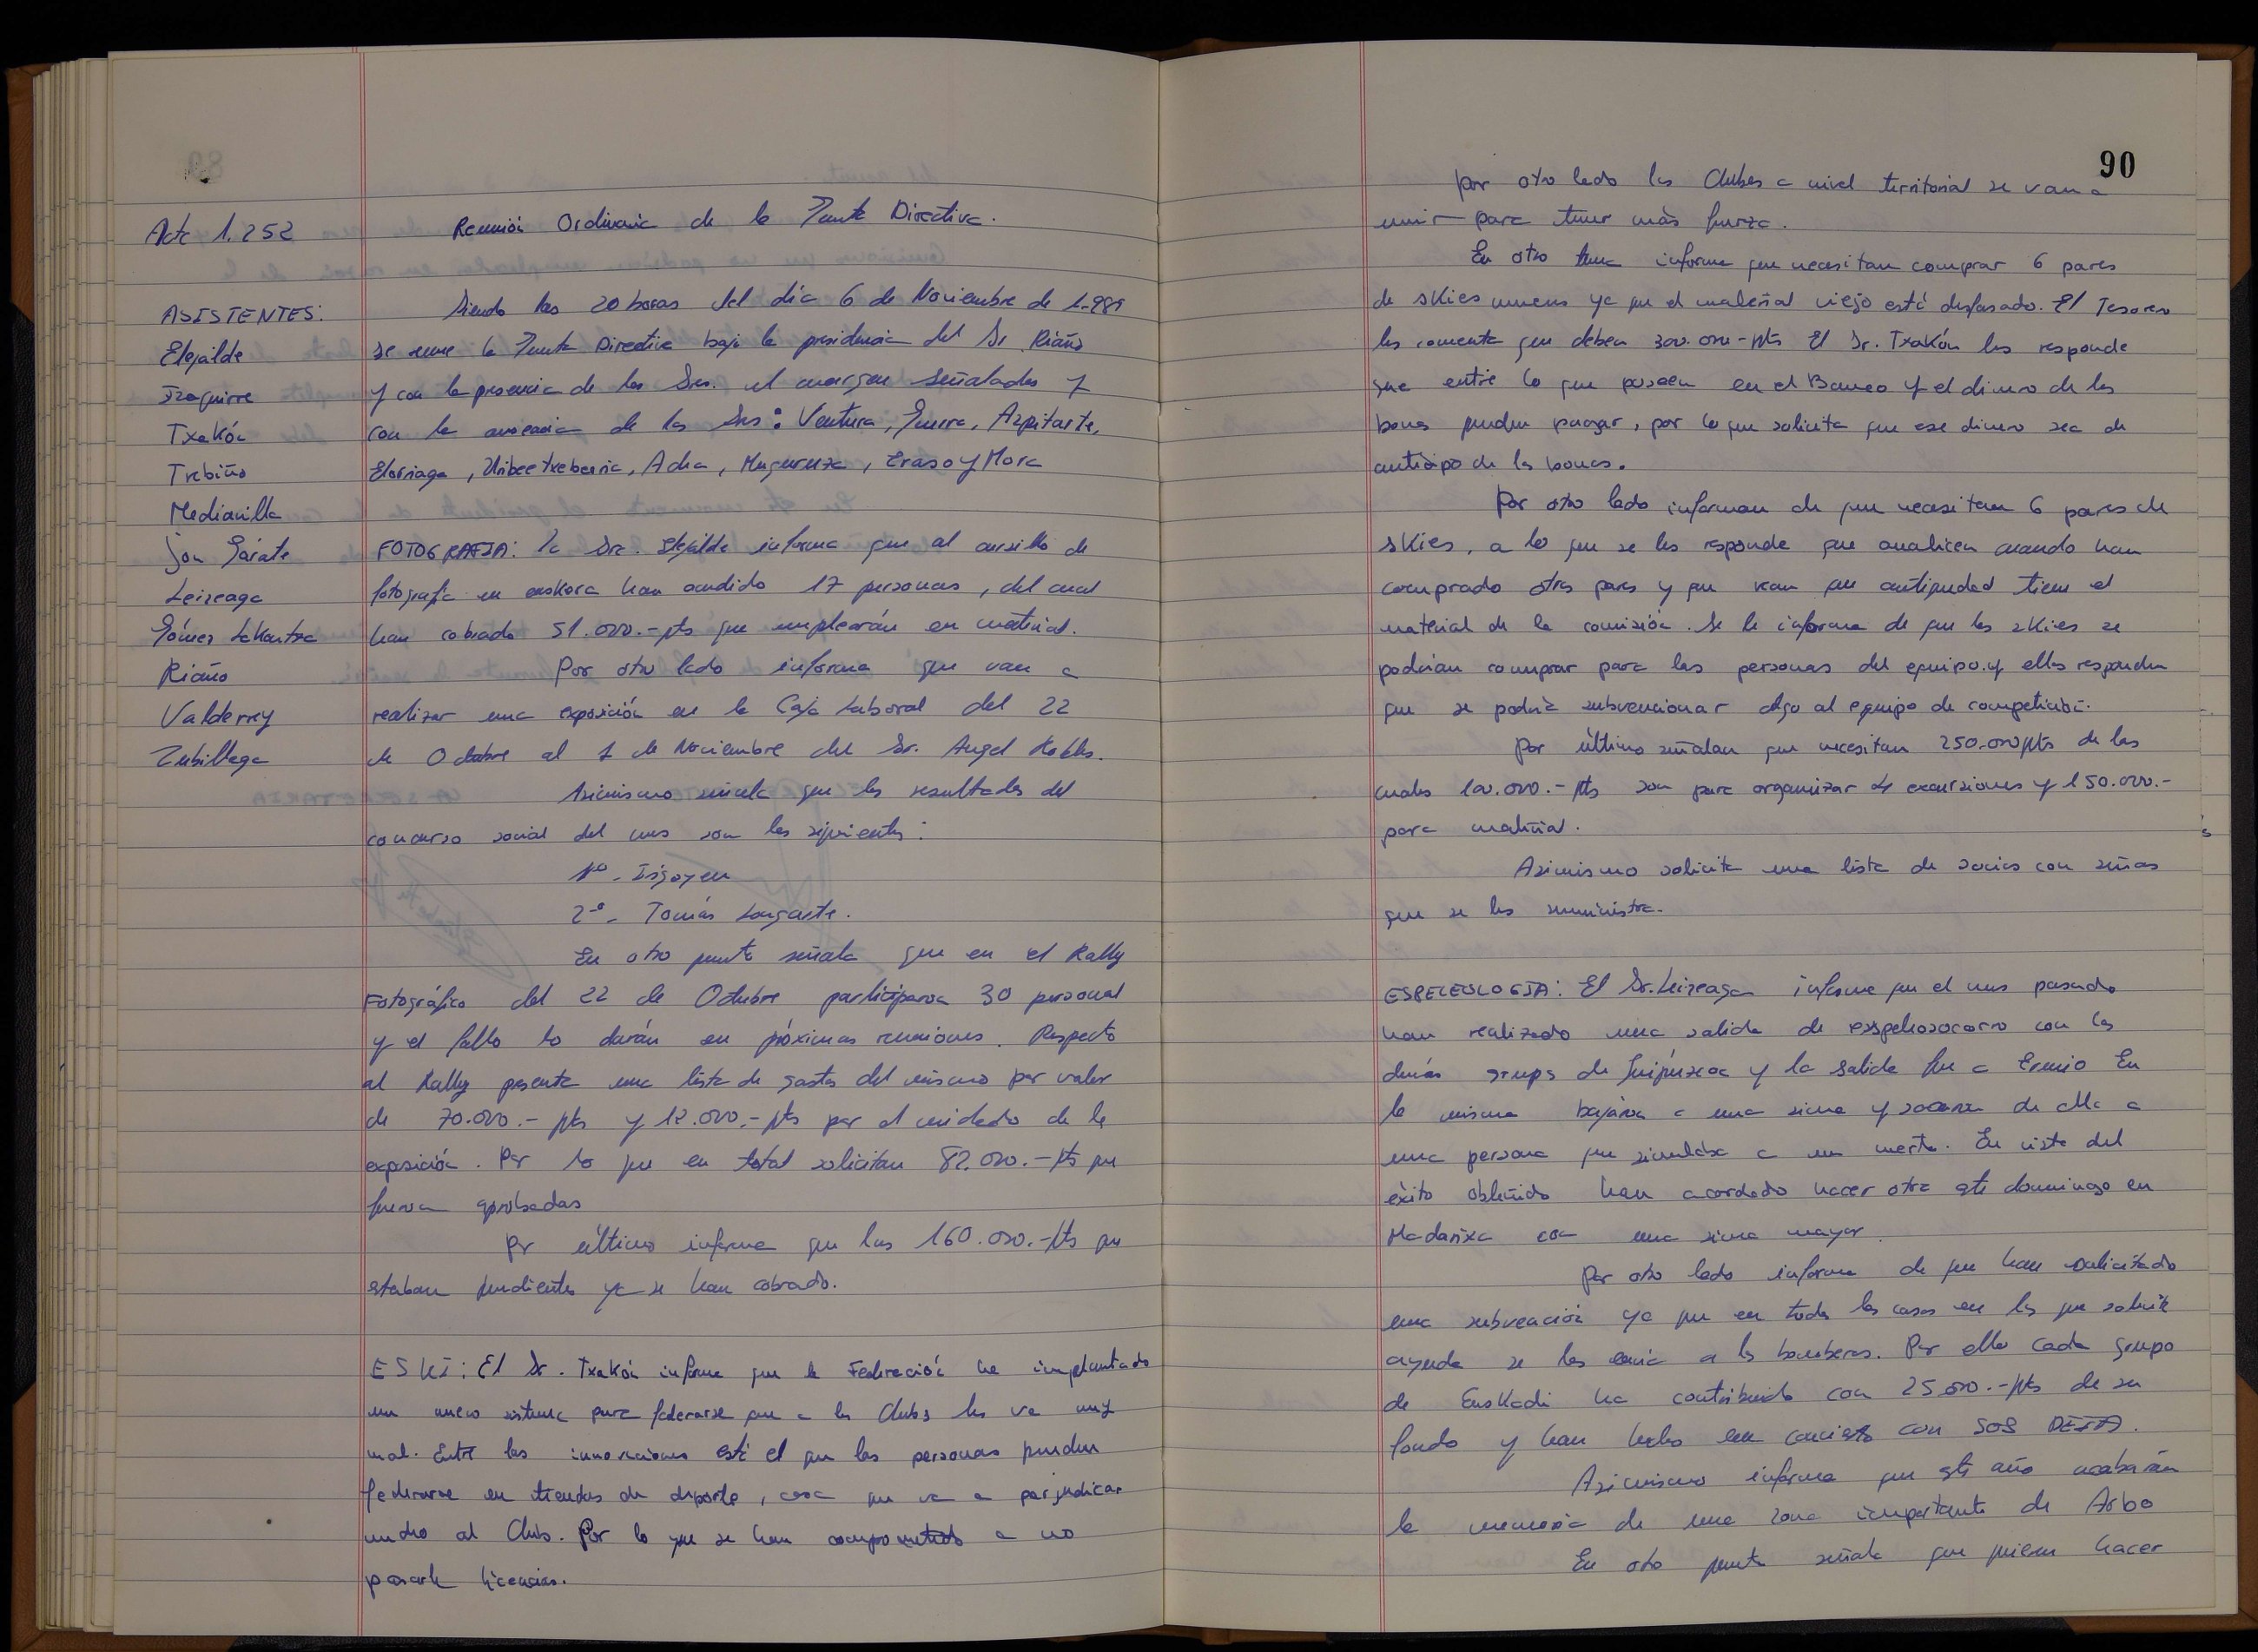 Acta 1.252
Reunión Ordinaria de la Junta Directiva.
ASISTENTES:
Elejalde
Izaguirre
Txakón
Trebiño
Mediavilla
Jon Gárate
Leizeaga
Gómez Lekantza
Riaño
Valderrey
Zubillaga
Siendo las 20 horas del día 6 de Noviembre de 1.989
se reune la Junta Directiva bajo la presidencia del Sr. Riaño
y con la presencia de los Sres. al margen señalados y
con la ausencia de los Sres: Ventura, Guerra, Azpitarte,
Elorriaga, Uribeetxeberria, Acha, Muguruza, Eraso y Mora
FOTOGRAFIA: La Sra. Elejalde informa que al cursillo de
fotografía en euskera han acudido 17 personas, del cual
han cobrado 51.000.-pts que emplearán en material.
Por otro lado informa que van a
realizar una exposición en la Caja Laboral del 22
de Octubre al 1 de Noviembre del Sr. Angel Robles.
Asimismo señala que los resultados del
concurso social del mes son los siguientes:
1º- Irigoyen
2º- Tomás Longarte.
En otro punto señala que en el Rally
Fotográfico del 22 de Octubre participaron 30 personas
y el fallo lo darán en próximas reuniones. Respecto
al Rally presenta una lista de gastos del mismo por valor
de 70.000.- pts y 12.000.- pts por el cuidado de la
exposición. Por lo que en total solicitan 82.000.-pts que
fueron aprobadas
Por último informa que las 160.000.-pts que
estaban pendientes ya se han cobrado.
ESKI: El Sr. Txakón informa que la Federación ha implantado
un nuevo sistema para federarse que a los Clubs les va muy
mal. Entre las innovaciones está el que las personas pueden
federarse en tiendas de deporte, cosa que va a perjudicar
mucho al Club. Por lo que se han comprometido a no
pasarle licencias.
90
Por otro lado los Clubes a nivel territorial se van a
unir para tener más fuerza.
En otro tema informa que necesitan comprar 6 pares
de skies nuevos ya que el material viejo está desfasado. El Tesorero
les comenta que deben 300.000-pts El Sr. Txakón les responde
que entre lo que poseen en el Banco y el dinero de los
bonos pueden pagar, por lo que solicita que ese dinero sea de
anticipo de los bonos.
Por otro lado informan de que necesitan 6 pares de
skies, a lo que se les responde que analicen cuando han
comprado otros pares y que vean que antiguedad tiene el
material de la comisión. Se le informa de que los skies se
podrían comprar para las personas del equipo y ellos responden
que se podría subvencionar algo al equipo de competición.
Por último señalan que necesitan 250.000pts de las
cuales 100.000.-pts son para organizar 4 excursiones y 150.000.-
para material.
Asimismo solicita una lista de socios con señas
que se les suministra.
ESPELEOLOGIA: El Sr. Leizeaga informa que el mes pasado
han realizado una salida de espeleosocorro con los
demás grupos de Guipúzcoa y la salida fue a Ernio En
la misma bajaron a una sima y sacaron de ella a
una persona que simulaba a un muerto. En vista del
éxito obtenido han acordado hacer otra este domingo en
Madarixa con una sima mayor.
Por otro lado informa de que han solicitado
una subvención ya que en todos los casos en los que solicite
ayuda se les envía a los bomberos. Por ello cada grupo
de Euskadi ha contribuido con 25.000.-pts de su
fondo y han hecho un concierto con SOS DEIA.
Asimismo informa que este año acabarán
la memoria de una zona importante de Arbo
En otro punto señala que quieren hacer